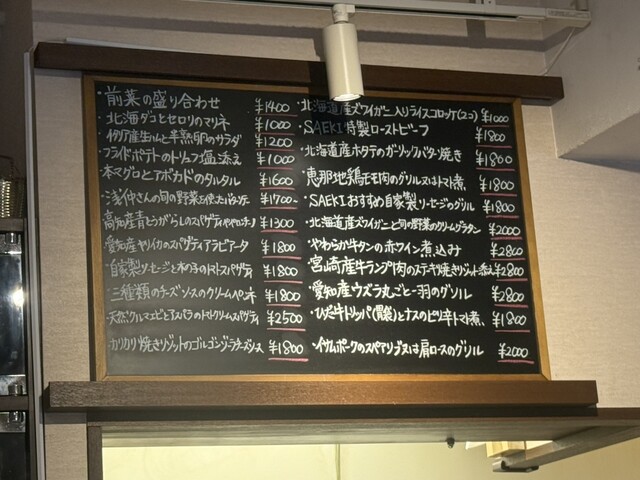 ・前菜の盛り合わせ ¥1400
・北海ダコとセロリのマリネ ¥1000
・イタリア産生ハムと半熟卵のサラダ ¥1200
・フライドポテトのトリュフ塩添え ¥1000
・本マグロとアボカドのタルタル ¥1600
・浅仲さんの旬の野菜を使った ¥1700
・高知産青とうがらしのスパゲティ ¥1300
・愛知産ヤリイカのスパゲティアラビアータ ¥1800
・自家製ソーセージと木の子のトマトスパゲティ ¥1800
・三種類のチーズソースのクリームペンネ ¥1800
・天然クルマエビとアスパラのトマトクリームスパゲティ ¥2500
・カリカリ焼きリゾットのゴルゴンゾーラチーズソース ¥1800
・北海道産ズワイガニ入りライスコロッケ(2コ) ¥1000
・SAEKI特製ローストビーフ ¥1800
・北海道産ホタテのガーリックバター焼き ¥1800
・恵那地鶏モモ肉のグリル又はトマト煮 ¥1800
・SAEKIおすすめ自家製ソーセージのグリル ¥1800
・北海道産ズワイガニと旬の野菜のクリームグラタン ¥2000
・やわらか牛タンの赤ワイン煮込み ¥2800
・宮崎産牛ランプ肉のステーキ焼きリゾット添え ¥2800
・愛知産ウズラ丸ごと一羽のグリル ¥2800
・ひだ牛トリッパ とナスのピリ辛トマト煮 ¥1800
・イサムポークのスペアリブ又は肩ロースのグリル ¥2000